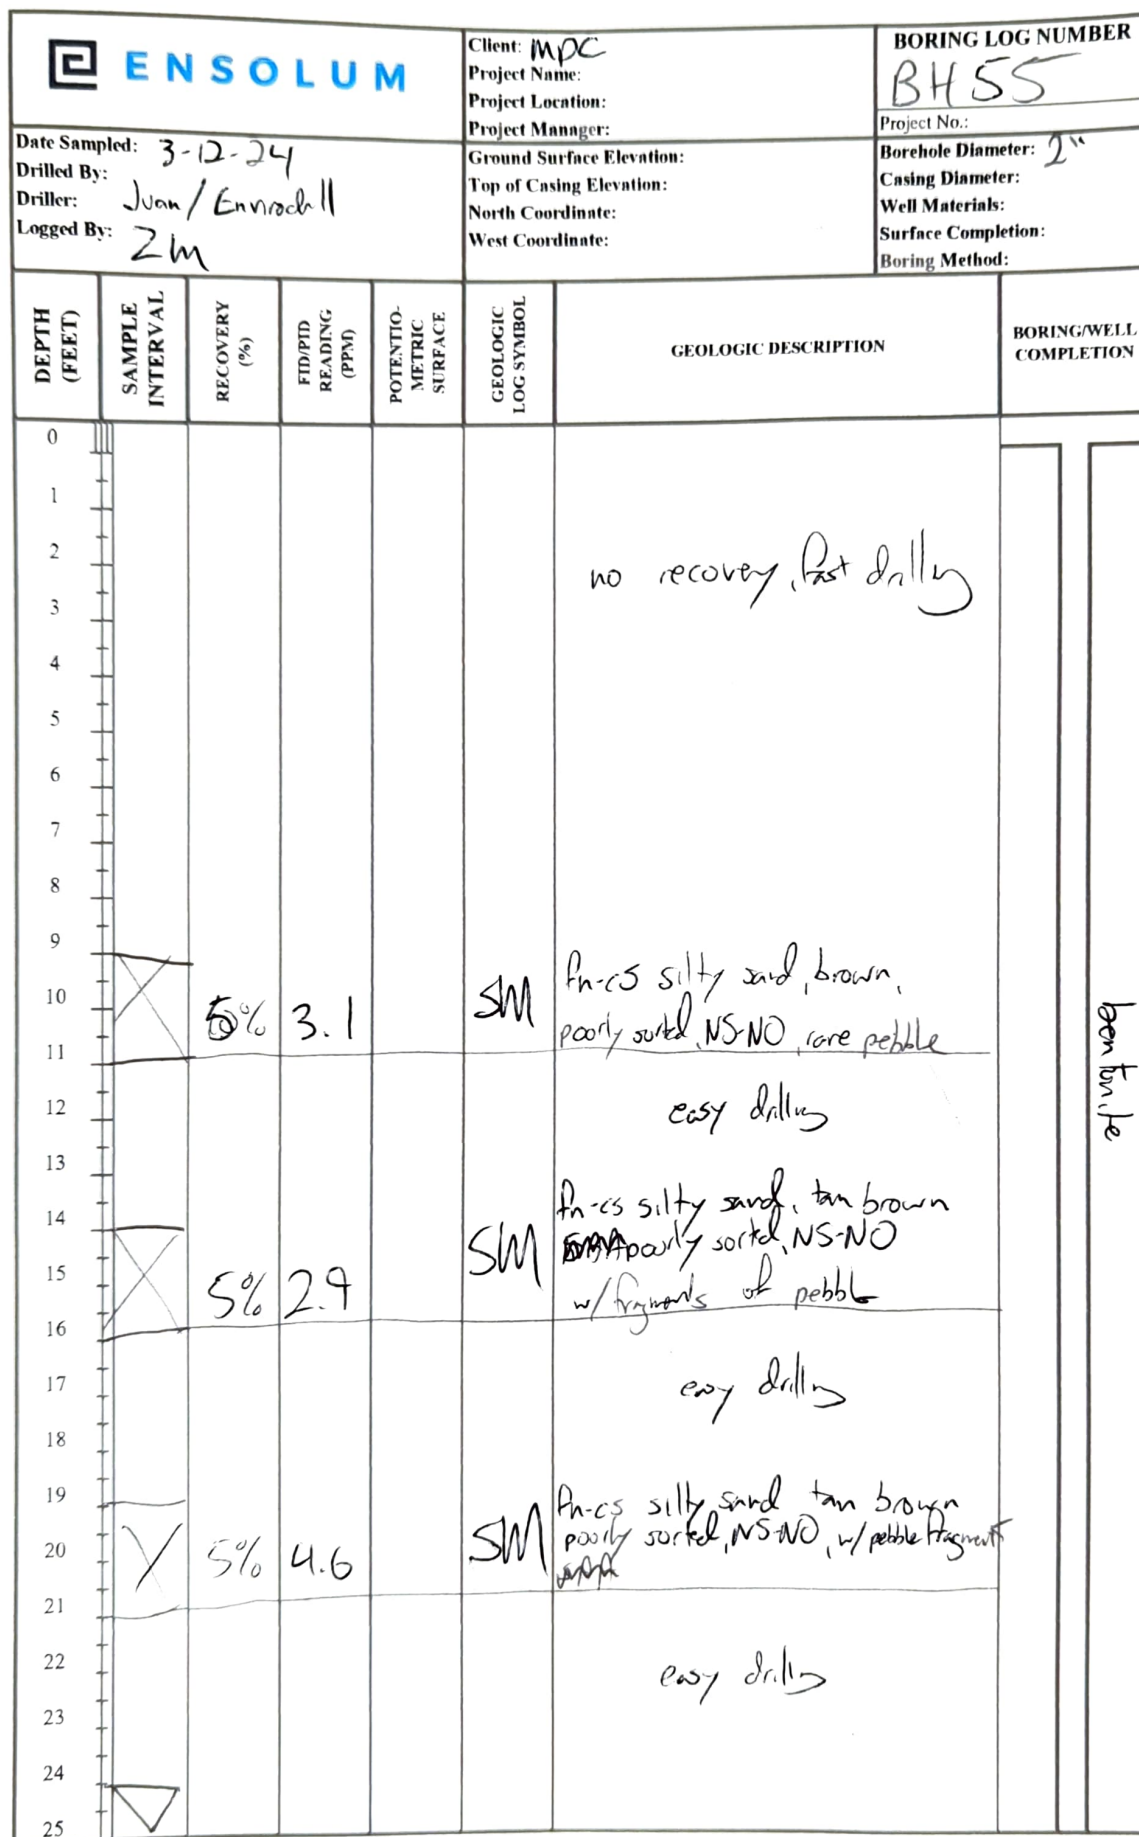 ENSOLUM
Client: MPC
Project Name:
Project Location:
Project Manager:
BORING LOG NUMBER
BH55
Project No.:
Date Sampled: 3-12-24
Drilled By:
Driller: Juan/Envirodrill
Logged By: ZM
Ground Surface Elevation:
Top of Casing Elevation:
North Coordinate:
West Coordinate:
Borehole Diameter: 2"
Casing Diameter:
Well Materials:
Surface Completion:
Boring Method:
DEPTH
(FEET)
SAMPLE
INTERVAL
RECOVERY
(%)
FID/PID
READING
(PPM)
POTENTIO-
METRIC
SURFACE
GEOLOGIC
LOG SYMBOL
GEOLOGIC DESCRIPTION
BORING/WELL
COMPLETION
0
1
2
no recovery, fast drilling
3
4
5
6
7
8
9
fn-cs silty sand, brown,
10 5% 3.1 SM
poorly sorted, NS-NO, rare pebble
11
12 easy drilling
bentonite
13
fn-cs silty sand, tan brown
14
poorly sorted, NS-NO
15 5% 2.9 SM
w/ fragments of pebble
16
17 easy drilling
18
19 fn-cs silty sand tan brown
poorly sorted, NS-NO, w/ pebble fragment
20 5% 4.6 SM
21
22 easy drilling
23
24
25